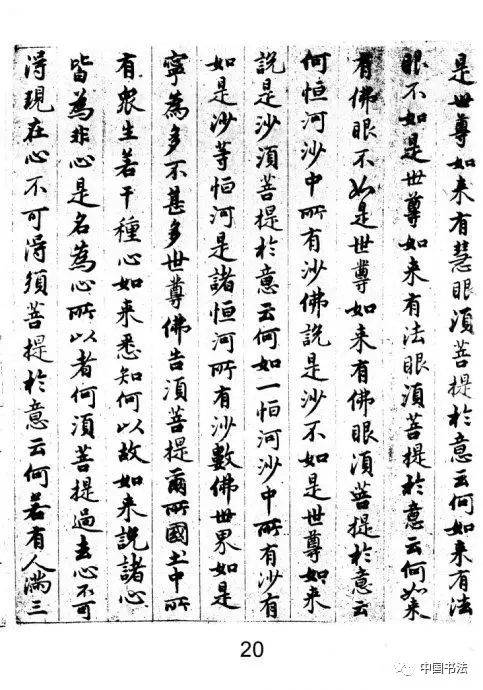 是世尊如来有慧眼湏菩提扵意云何如来有法
眼不如是世尊如来有法眼湏菩提扵意云何如来
有佛眼不如是世尊如来有佛眼湏菩提扵意云
何恒河沙中所有沙佛說是沙不如是世尊如来
說是沙湏菩提扵意云何如一恒河沙中所有沙有
如是沙等恒河是諸恒河所有沙數佛世界如是
寧為多不甚多世尊佛告湏菩提爾所國土中所
有衆生若干種心如来悉知何以故如来說諸心
皆為非心是名為心所以者何湏菩提過去心不可
淂現在心不可淂須菩提扵意云何若有人滿三
20
中国书法